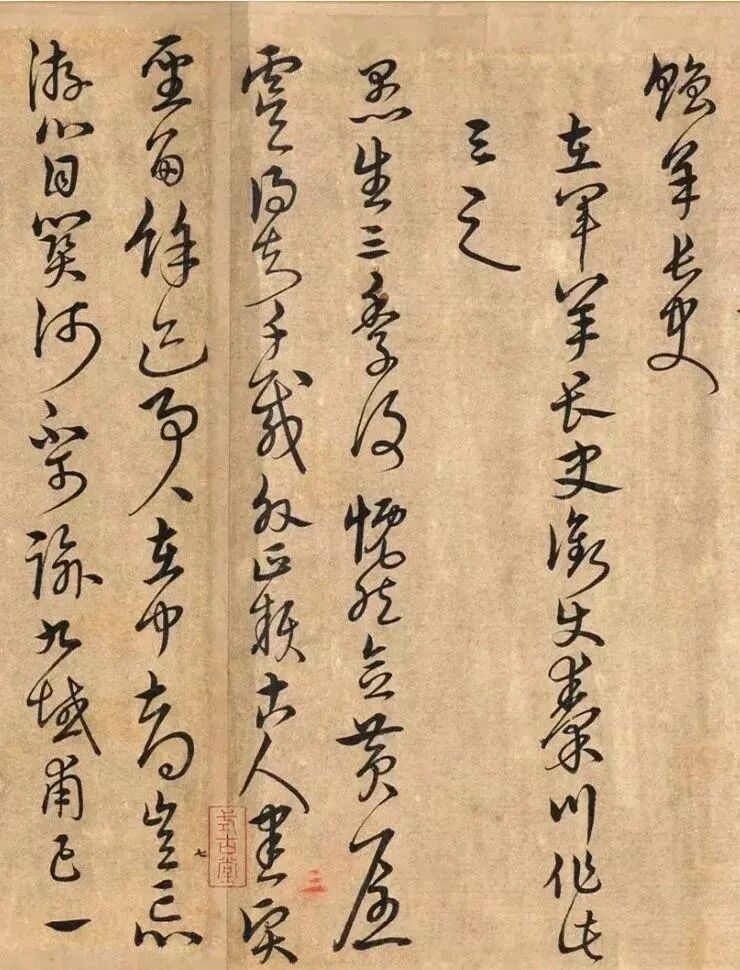 贈羊長史
左軍羊長史銜使秦川作此
與之
愚生三季後慨然念黃
虞得知千載外正賴古人書賢
聖留餘迹事事在中都豈忘
游心目關河不可踰九域甫已一
式古堂
三
七